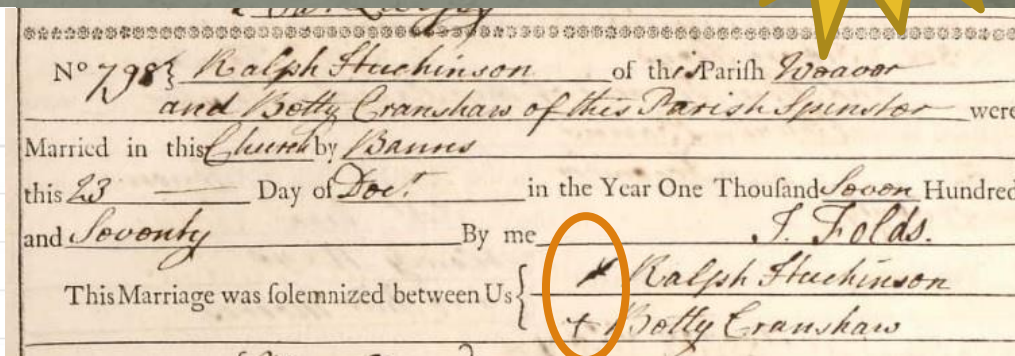 Nº 798 Ralph Huchinson of this Parish Weaver
and Betty Cranshaw of this Parish Spinster were
Married in this Church by Banns
this 23 Day of Decr. in the Year One Thousand Seven Hundred
and Seventy By me J. Folds.
This Marriage was solemnized between Us { x Ralph Huchinson
+ Betty Cranshaw